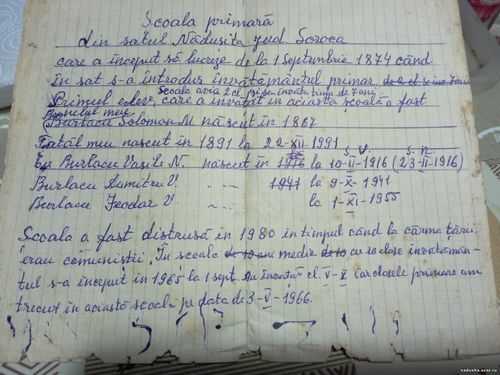 Școala primară
din satul Nădușita jud. Soroca
care a început să lucreze de la 1 septembrie 1874 când
în sat s-a introdus învățământul primar
Școala avia 2 cl. și se învăta timp de 7 ani
Primul elev, care a învațat in aciasta școală a fost
Bunelul meu
Burlacu Solomon M născut în 1867
Tatăl meu nascut în 1891 la 22-XII-1991
s.v. s.n.
eu Burlacu Vasile N. nascut în 1916 la 10-II-1916 (23-II-1916)
Burlacu Dumitru V. 1941 la 9-X-1941
Burlacu Feodor V. la 1-XI-1955
Școala a fost distrusă în 1980 in timpul când la cârma țării
erau comuniștii. În scoala medie cu 10 clase învătămân-
tul s-a început în 1965 la 1 sept. au învatat cl. V-X iar clasele primare am
trecut în aciastă scoală pe data de 3-V-1966.
nadusita.ucoz.ru